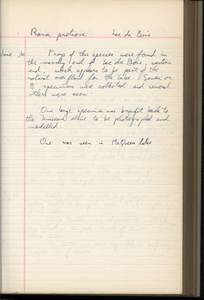 Rana pretiosa Lac du Bois
June 10 Frogs of this species were found in
the marshy land of Lac du Bois, western
end, which appears to be part of the
natural overflow for the lake. Seven or
8 specimens was collected and several
others were seen.
One large specimen was brought back to
the museum alive to be photographed and
modelled.
One was seen in McQueen Lake